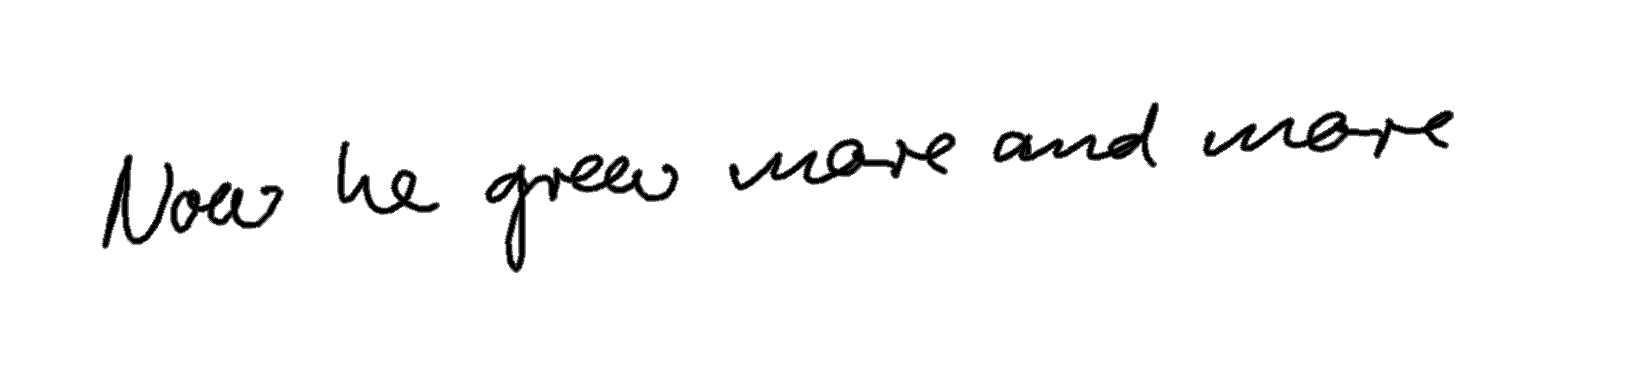 Now he grew more and more